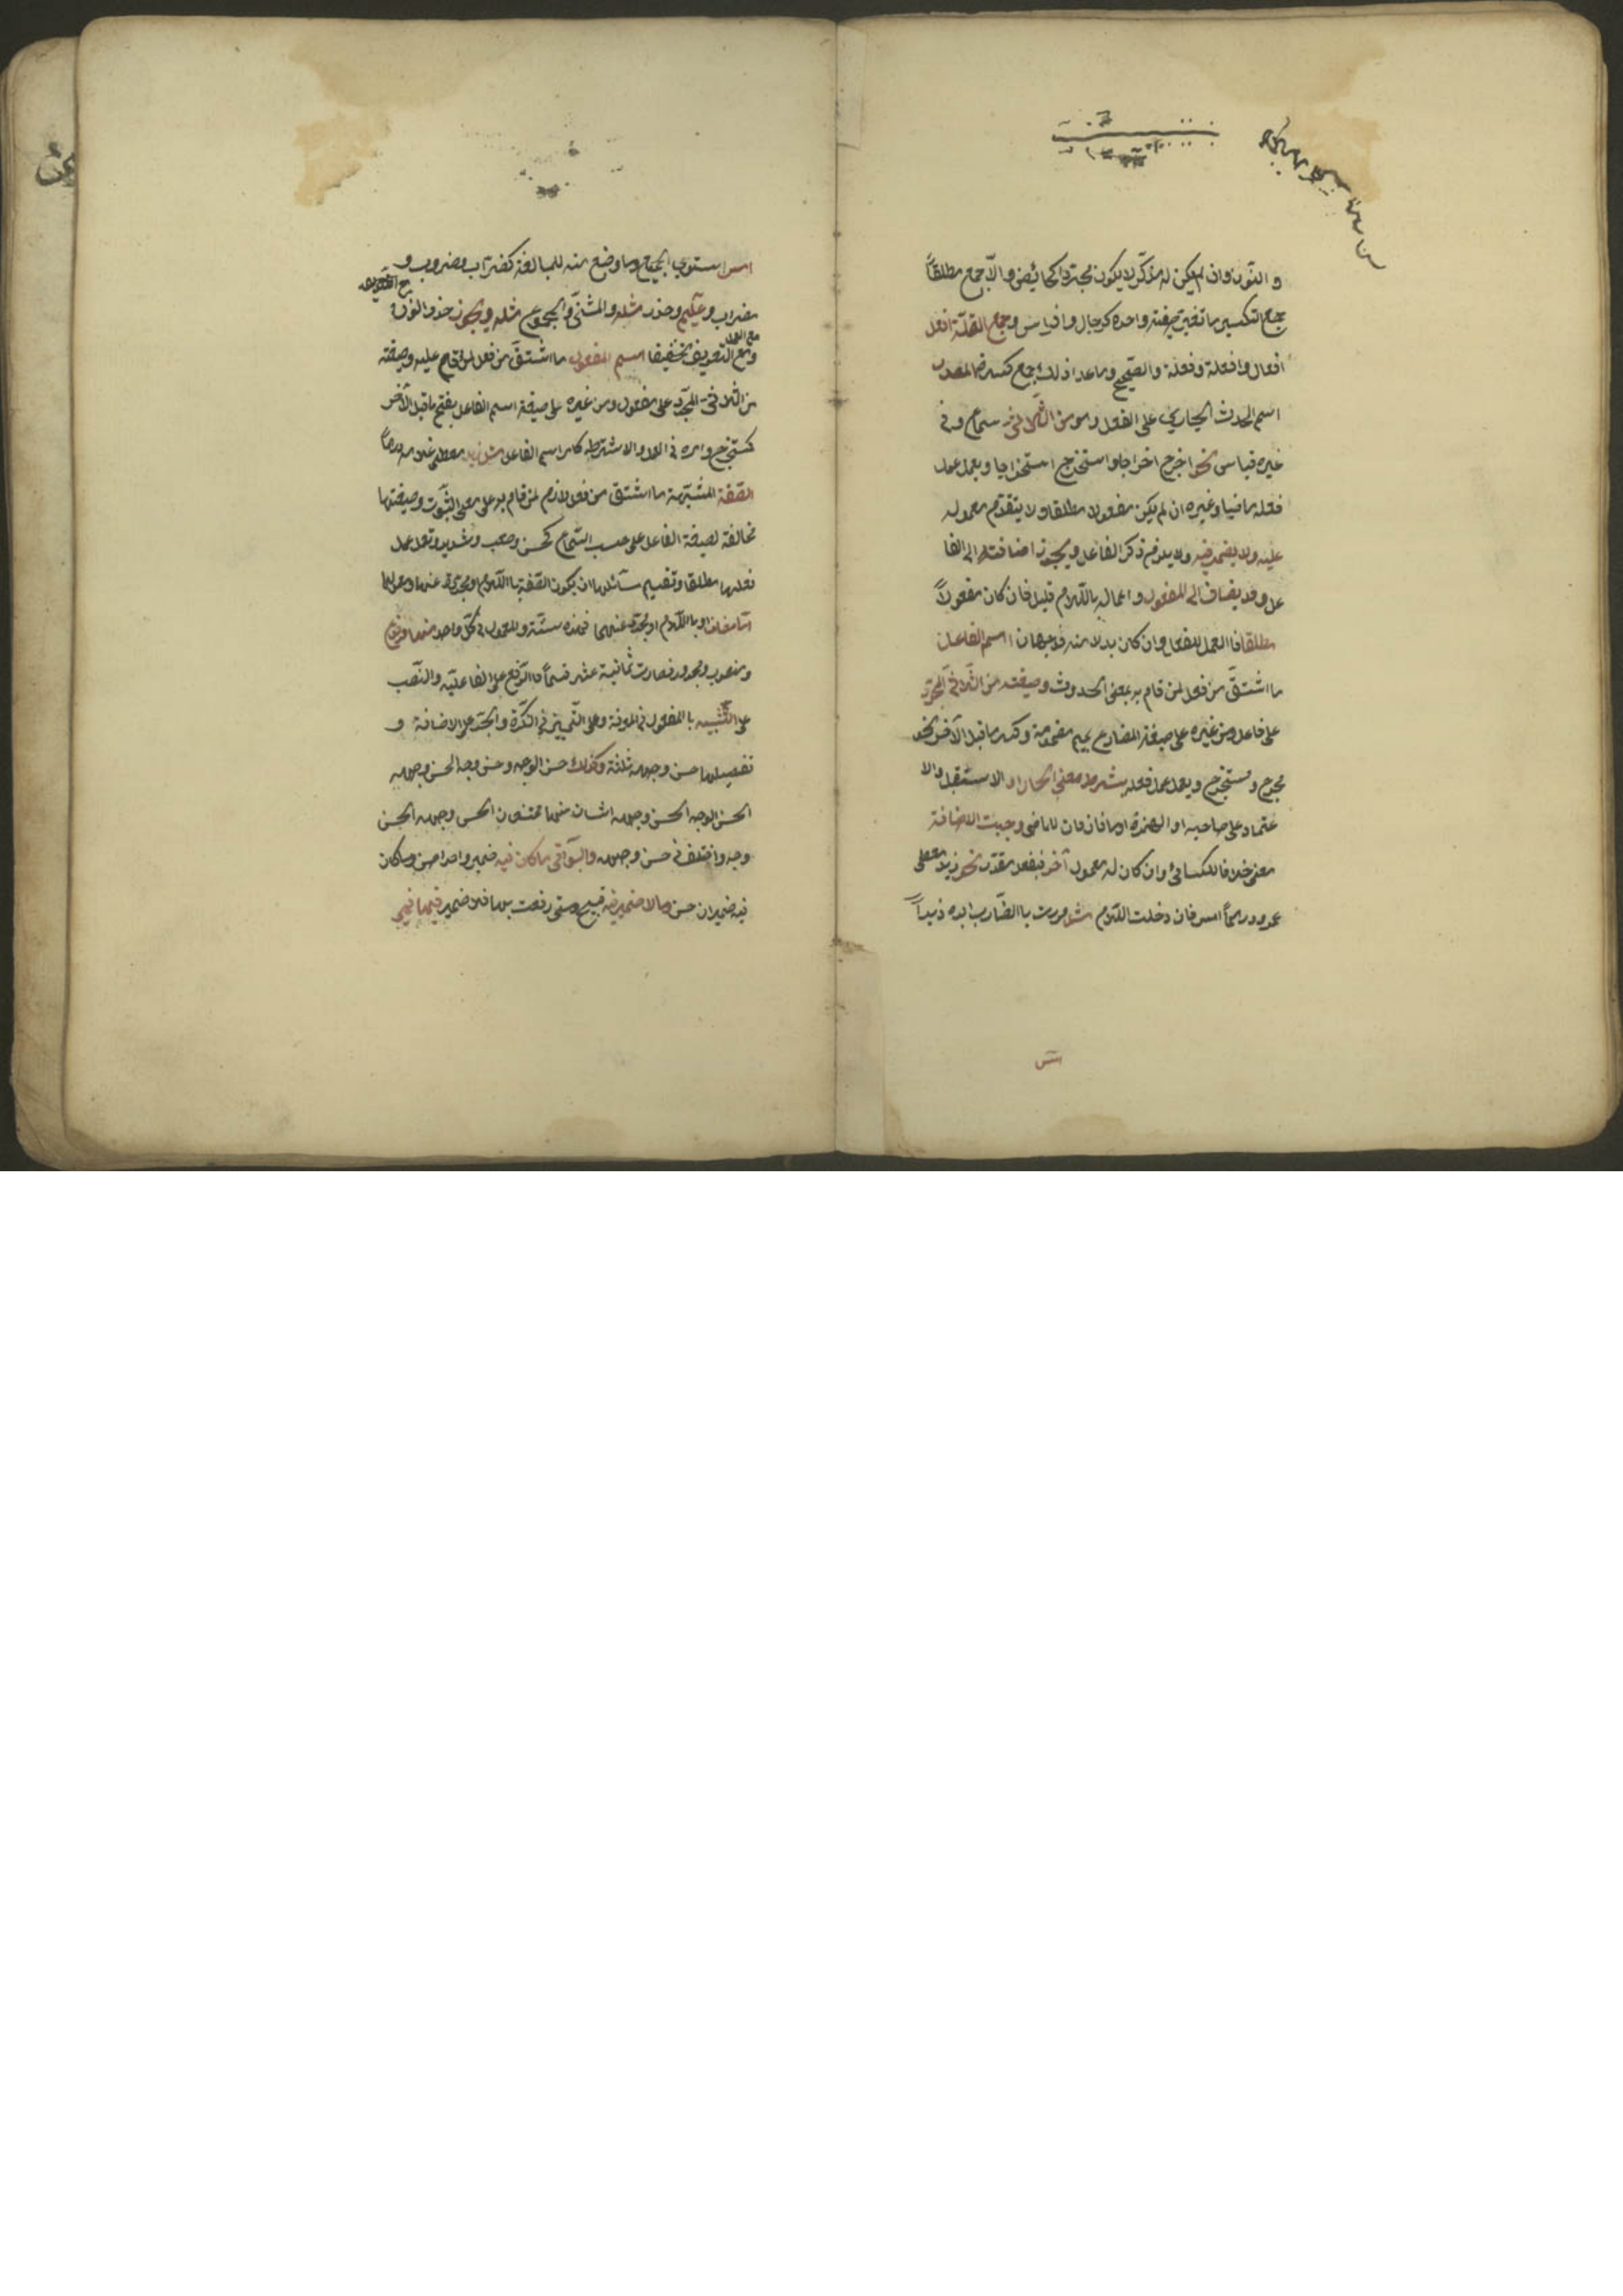 و النون وان لم يكن له مذكر لا يكون مجردا كحائض والا جمع مطلقاً
جمع التكسير ما تغير صيغة واحده كرجال وافراس وجمع القلة افعل
افعال وافعلة وفعلة والصحيح وما عدا ذلك جمع كثرة المصدر
اسم الحدث الجاري على الفعل وهو من الثلاثي سماع وفي
غيره قياس نحو اخرج اخراجا واستخرج استخراجا ويعمل عمل
فعله ماضيا وغيره ان لم يكن مفعولا مطلقا ولا يتقدم معموله
عليه ولا يضمر فيه ولا يلزم ذكر الفاعل ويجوز اضافته الى الفا
عل وقد يضاف الى المفعول واعماله باللام قليل فان كان مفعولاً
مطلقا فالعمل للفعل وان كان بدلا منه فوجهان اسم الفاعل
ما اشتق من فعل لمن قام به بمعنى الحدوث وصيغته من الثلاثي المجرد
على فاعل ومن غيره على صيغة المضارع بميم مضمومة وكسر ما قبل الآخر نحو
مخرج ومستخرج ويعمل عمل فعله بشرط معنى الحال او الاستقبل والا
عتماد على صاحبه او الهمزة او ما فان كان للماضي وجبت الاضافة
معنى خلافا للكسائي وان كان له معمول آخر فبفعل مقدر نحو زيد معطى
عمرو درهماً امس فان دخلت اللام مثل مررت بالضارب ابوه زيداً
امس
امس استوى الجميع وما وضع منه للمبالغة كضراب وضروب و
مضراب وعليم وحذر مثله والمثنى والمجموع مثله ويجوز حذف النون
مع العمل
والتعريف تخفيفا اسم المفعول ما اشتق من فعل لمن وقع عليه وصيغته
من الثلاثي المجرد على مفعول ومن غيره على صيغة اسم الفاعل بفتح ما قبل الآخر
كمستخرج وامره في العمل والاشتراط كامر اسم الفاعل مثل زيد معطى غلامه درهماً
الصفة المشبهة ما اشتق من فعل لازم لمن قام به على معنى الثبوت وصيغتها
مخالفة لصيغة الفاعل على حسب السماع كحسن وصعب وشديد وتعمل عمل
فعلها مطلقا وتقسيم مسائلها ان يكون الصفة باللام او مجردة عنها ومعمولها
اما مضافا او باللام او مجردا عنهما فهذه ستة والمعمول في كل واحد منها مرفوع
ومنصوب ومجرور فصارت ثمانية عشر قسماً فالرفع على الفاعلية والنصب
على التشبيه بالمفعول في المعرفة وعلى التمييز في النكرة والجر على الاضافة و
تفصيلها حسن وجهه ثلثة وكذلك حسن الوجه وحسن وجه الحسن وجهه
الحسن الوجه الحسن وجه اثنان منها ممتنعان الحسن وجهه الحسن
وجه واختلف في حسن وجهه والبواقي ما كان فيه ضمير واحد احسن وما كان
فيه ضميران حسن وما لا ضمير فيه قبيح ومتى رفعت بها فلا ضمير فيها فهي